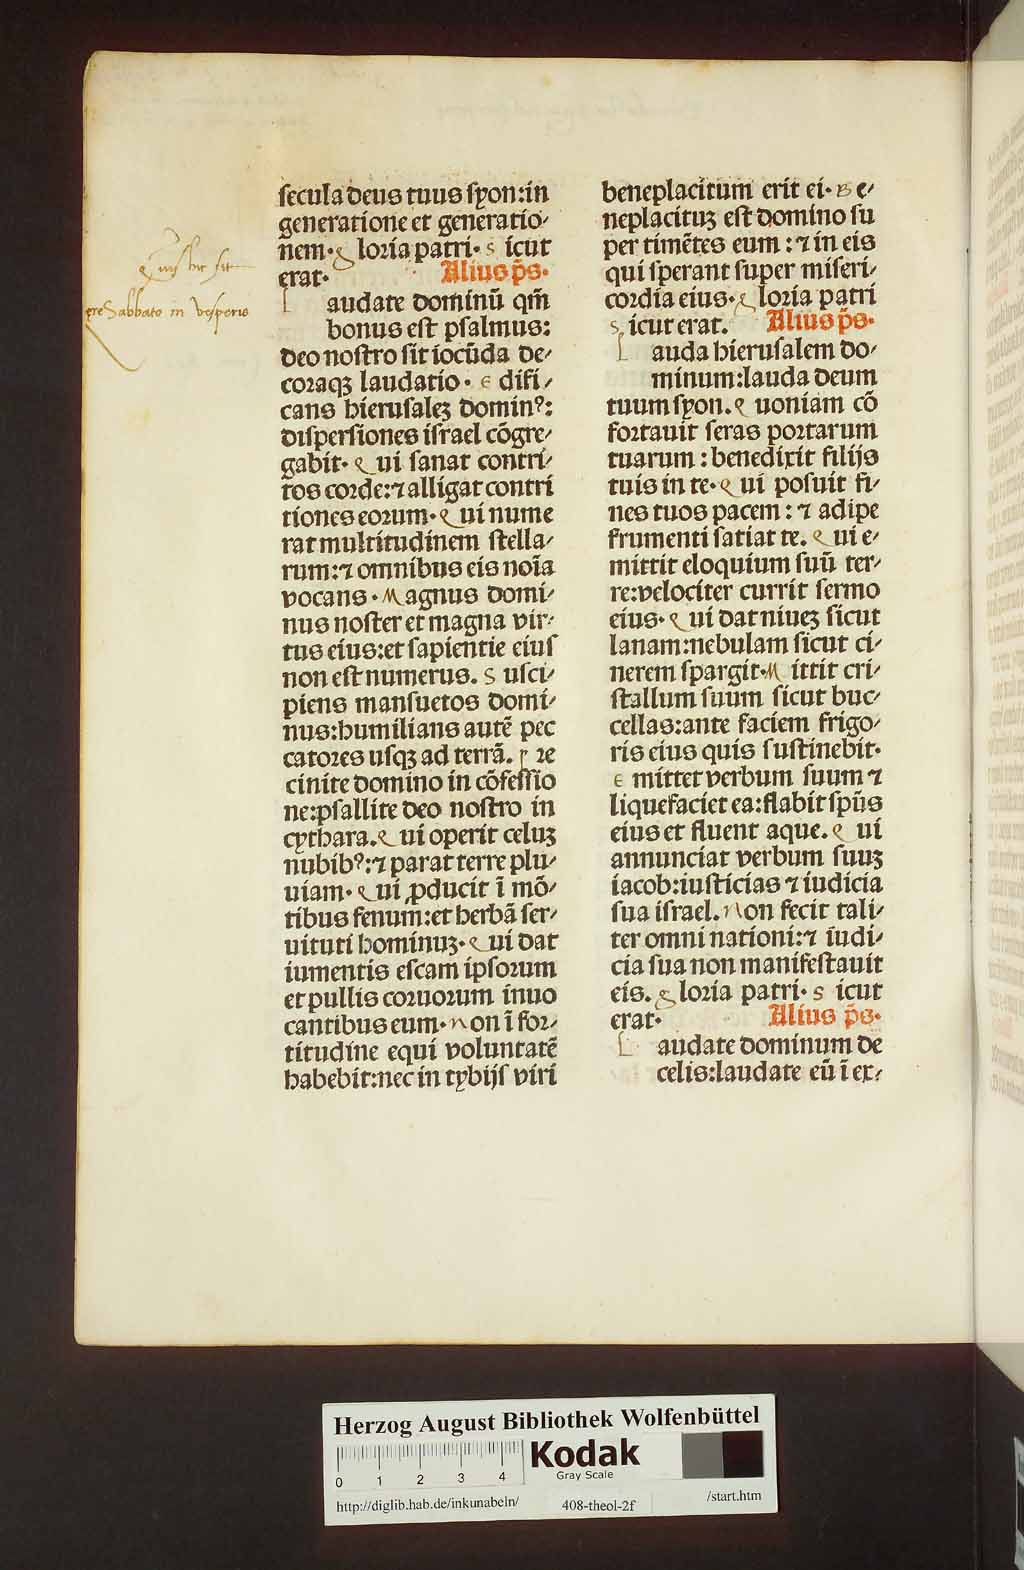 secula deus tuus syon:in
generatione et generatio-
nem. Gloria patri. Sicut
erat. Alius p̄s.
Laudate dominū qm̄
bonus est psalmus:
deo nostro sit iocūda de-
coraqꝫ laudatio. Edifi-
cans hierusaleꝫ dominꝰ:
dispersiones israel cōgre-
gabit. Qui sanat contri-
tos corde:⁊ alligat contri
tiones eorum. Qui nume
rat multitudinem stella-
rum:⁊ omnibus eis noīa
vocans. Magnus domi-
nus noster et magna vir-
tus eius:et sapientie eius
non est numerus. Susci-
piens mansuetos domi-
nus:humilians autē pec
catores usqꝫ ad terrā. Pre
cinite domino in cōfessio
ne:psallite deo nostro in
cythara. Qui operit celuꝫ
nubibꝰ:⁊ parat terre plu-
uiam. Qui ꝓducit ī mō-
tibus fenum:et herbā ser-
uituti hominuꝫ. Qui dat
iumentis escam ipsorum
et pullis coruorum inuo
cantibus eum. Non ī for-
titudine equi voluntatē
habebit:nec in tybijs viri
beneplacitum erit ei. Be-
neplacituꝫ est domino su
per timētes eum:⁊ in eis
qui sperant super miseri-
cordia eius. Gloria patri
Sicut erat. Alius p̄s.
Lauda hierusalem do-
minum:lauda deum
tuum syon. Quoniam cō
fortauit seras portarum
tuarum:benedixit filijs
tuis in te. Qui posuit fi-
nes tuos pacem:⁊ adipe
frumenti satiat te. Qui e-
mittit eloquium suū ter-
re:velociter currit sermo
eius. Qui dat niueꝫ sicut
lanam:nebulam sicut ci-
nerem spargit. Mittit cri-
stallum suum sicut buc-
cellas:ante faciem frigo-
ris eius quis sustinebit.
Emittet verbum suum ⁊
liquefaciet ea:flabit sp̄us
eius et fluent aque. Qui
annunciat verbum suuꝫ
iacob:iusticias ⁊ iudicia
sua israel. Non fecit tali-
ter omni nationi:⁊ iudi-
cia sua non manifestauit
eis. Gloria patri. Sicut
erat. Alius p̄s.
Laudate dominum de
celis:laudate eū ī ex-
Sabbato in Vesperis
Herzog August Bibliothek Wolfenbüttel
0 1 2 3 4
Kodak
Gray Scale
http://diglib.hab.de/inkunabeln/ 408-theol-2f /start.htm